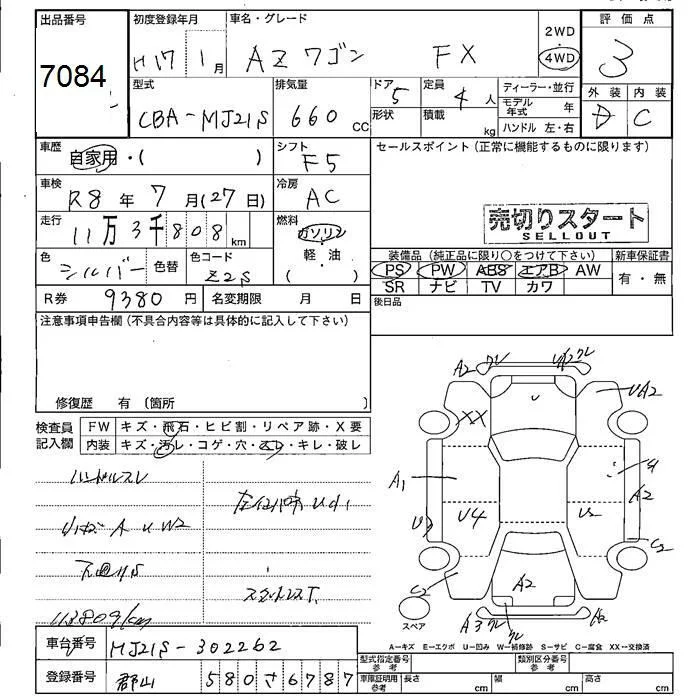 出品番号
7084
初度登録年月
H17 1月
車名・グレード
AZワゴン FX
2WD
4WD
評価点
3
型式
CBA-MJ21S
排気量
660 CC
ドア
5
形状
定員
4 人
積載 kg
ディーラー・並行
モデル年式 年
ハンドル 左・右
外装
D
内装
C
車歴
自家用・( )
シフト
F5
セールスポイント(正常に機能するものに限ります)
車検
R8 年 7 月(27日)
冷房
AC
売切りスタート
SELLOUT
走行
11万3千808km
燃料
ガソリン
軽・油
( )
色
シルバー
色替
色コード
Z2S
装備品(純正品に限り○をつけて下さい)
新車保証書
PS PW ABS エアB AW
SR ナビ TV カワ
有・無
R券 9380円
名変期限 月 日
後日品
注意事項申告欄(不具合内容等は具体的に記入して下さい)
修復歴 有 〔箇所 〕
検査員記入欄
FW キズ・飛石・ヒビ割・リペア跡・X要
内装 キズ・汚レ・コゲ・穴・スレ・キレ・破レ
ハンドルスレ
下廻りS
A2
UA2
XX
A1
A2
U4
U2
C2
C2
A2
A3
スペア
A=キズ E=エクボ U=凹み W=補修跡 S=サビ C=腐食 XX=交換済
車台番号
MJ21S-302262
登録番号
郡山 580さ6787
型式指定番号
参考
類別区分番号
参考
車庫証明用
参考
長さ cm
幅 cm
高さ cm